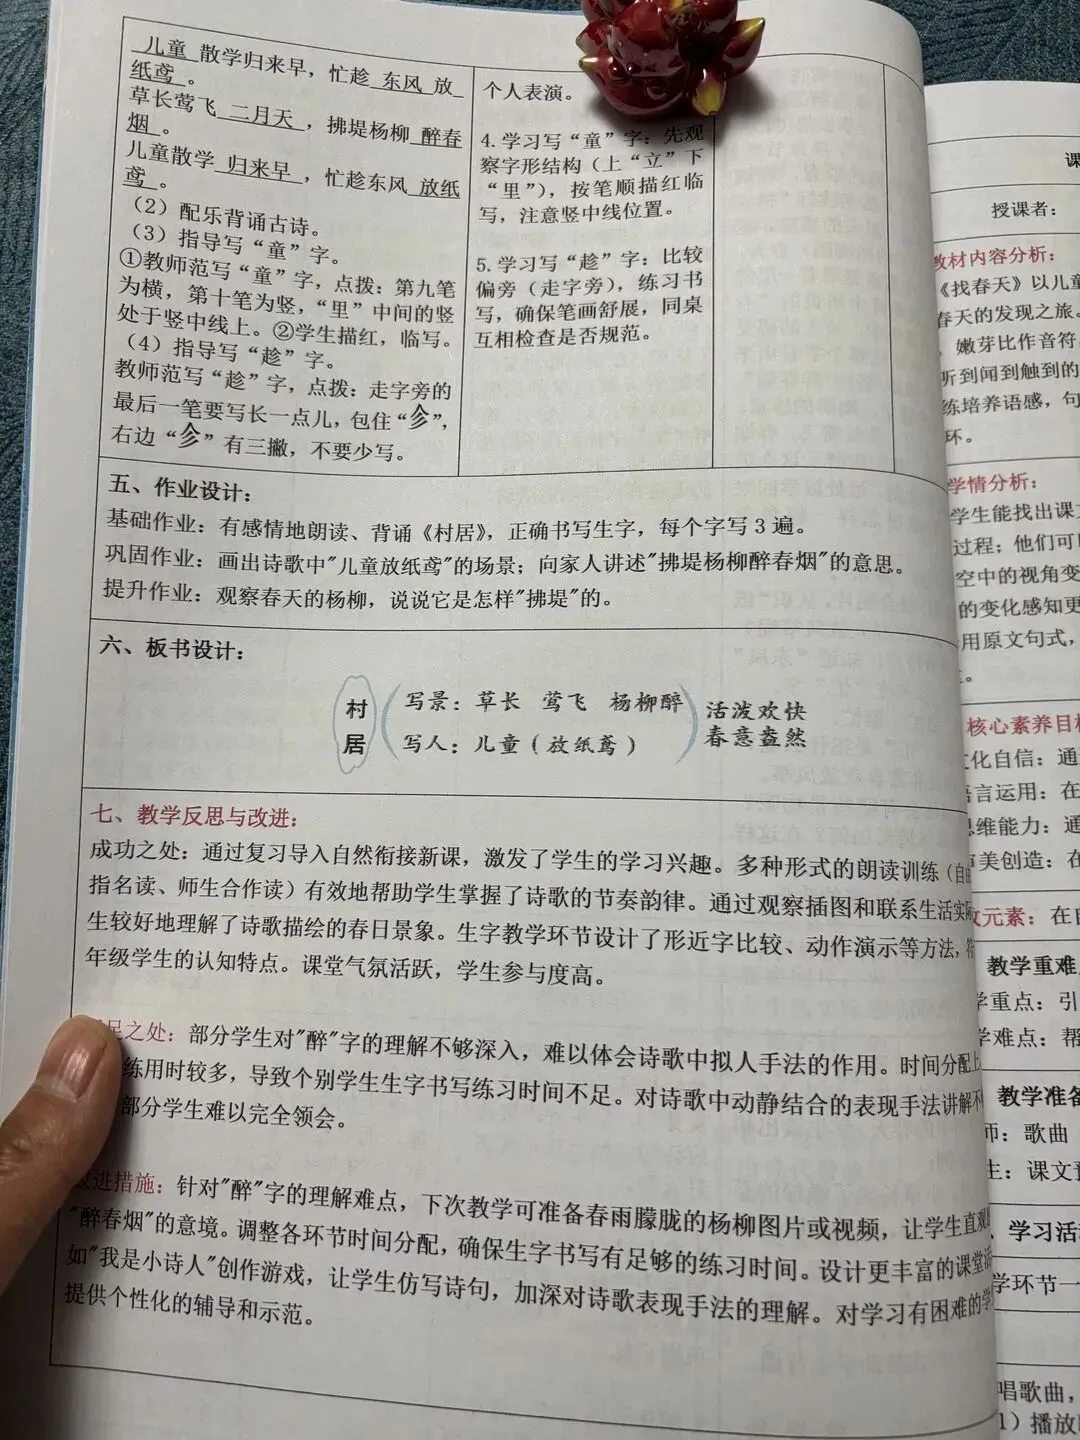 儿童 散学归来早，忙趁 东风 放
纸鸢 。
草长莺飞 二月天 ，拂堤杨柳 醉春
烟 。
儿童散学 归来早 ，忙趁东风 放纸
鸢 。
（2）配乐背诵古诗。
（3）指导写“童”字。
①教师范写“童”字，点拨：第九笔
为横，第十笔为竖，“里”中间的竖
处于竖中线上。②学生描红，临写。
（4）指导写“趁”字。
教师范写“趁”字，点拨：走字旁的
最后一笔要写长一点儿，包住“㐱”，
右边“㐱”有三撇，不要少写。
个人表演。
4.学习写“童”字：先观
察字形结构（上“立”下
“里”），按笔顺描红临
写，注意竖中线位置。
5.学习写“趁”字：比较
偏旁（走字旁），练习书
写，确保笔画舒展，同桌
互相检查是否规范。
五、作业设计：
基础作业：有感情地朗读、背诵《村居》，正确书写生字，每个字写 3 遍。
巩固作业：画出诗歌中"儿童放纸鸢"的场景；向家人讲述"拂堤杨柳醉春烟"的意思。
提升作业：观察春天的杨柳，说说它是怎样"拂堤"的。
六、板书设计：
村
居
写景：草长 莺飞 杨柳醉
写人：儿童（放纸鸢）
活泼欢快
春意盎然
七、教学反思与改进：
成功之处：通过复习导入自然衔接新课，激发了学生的学习兴趣。多种形式的朗读训练（自由
指名读、师生合作读）有效地帮助学生掌握了诗歌的节奏韵律。通过观察插图和联系生活实际
生较好地理解了诗歌描绘的春日景象。生字教学环节设计了形近字比较、动作演示等方法，符
年级学生的认知特点。课堂气氛活跃，学生参与度高。
足之处：部分学生对"醉"字的理解不够深入，难以体会诗歌中拟人手法的作用。时间分配上
练用时较多，导致个别学生生字书写练习时间不足。对诗歌中动静结合的表现手法讲解不
部分学生难以完全领会。
改进措施：针对"醉"字的理解难点，下次教学可准备春雨朦胧的杨柳图片或视频，让学生直观
"醉春烟"的意境。调整各环节时间分配，确保生字书写有足够的练习时间。设计更丰富的课堂活
如"我是小诗人"创作游戏，让学生仿写诗句，加深对诗歌表现手法的理解。对学习有困难的学
提供个性化的辅导和示范。
课
授课者：
教材内容分析：
《找春天》以儿童
春天的发现之旅。
，嫩芽比作音符
听到闻到触到的
练培养语感，句
环。
学情分析：
学生能找出课文
过程；他们可
空中的视角变
的变化感知更
用原文句式，
。
核心素养目标
文化自信：通
语言运用：在
思维能力：通
审美创造：在
元素：在
教学重难
学重点：引
学难点：帮
教学准备
师：歌曲
生：课文
学习活
学环节一
唱歌曲，
1）播放